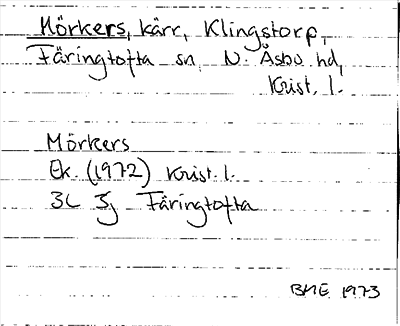 Mörkers, kärr, Klingstorp,
Färingtofta sn, N. Åsbo hd,
Krist. l.
Mörkers
Ek. (1972) Krist. l.
3C 5j Färingtofta
BME 1973